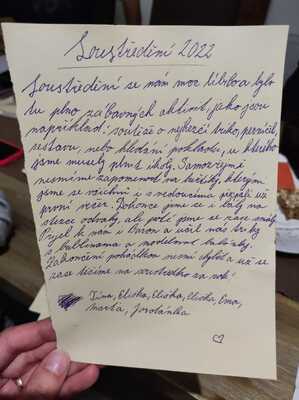 Soustředění 2022
Soustředění se nám moc líbilo a bylo
tu plno zábavných aktivit, jako jsou
například: soutěž o nejhezčí triko, perníček,
sestavu, nebo hledání pokladu, u kterého
jsme museli plnit úkoly. Samozřejmě
nesmíme zapomenout na kuličky, kterým
jsme se všichni i s vedoucími
první večer. Dokonce jsme se i báli na
stezce odvahy, ale poté jsme se zase smáli.
Přijel k nám i Baron a učil nás triky
s bublinama a modelovat balónky.
Zakončení pohádkou nesmí chybět a už se
zase těšíme na soustředko za rok!
Tina, Eliška, Eliška, Eliška, Ema,
Marta, Jordánka